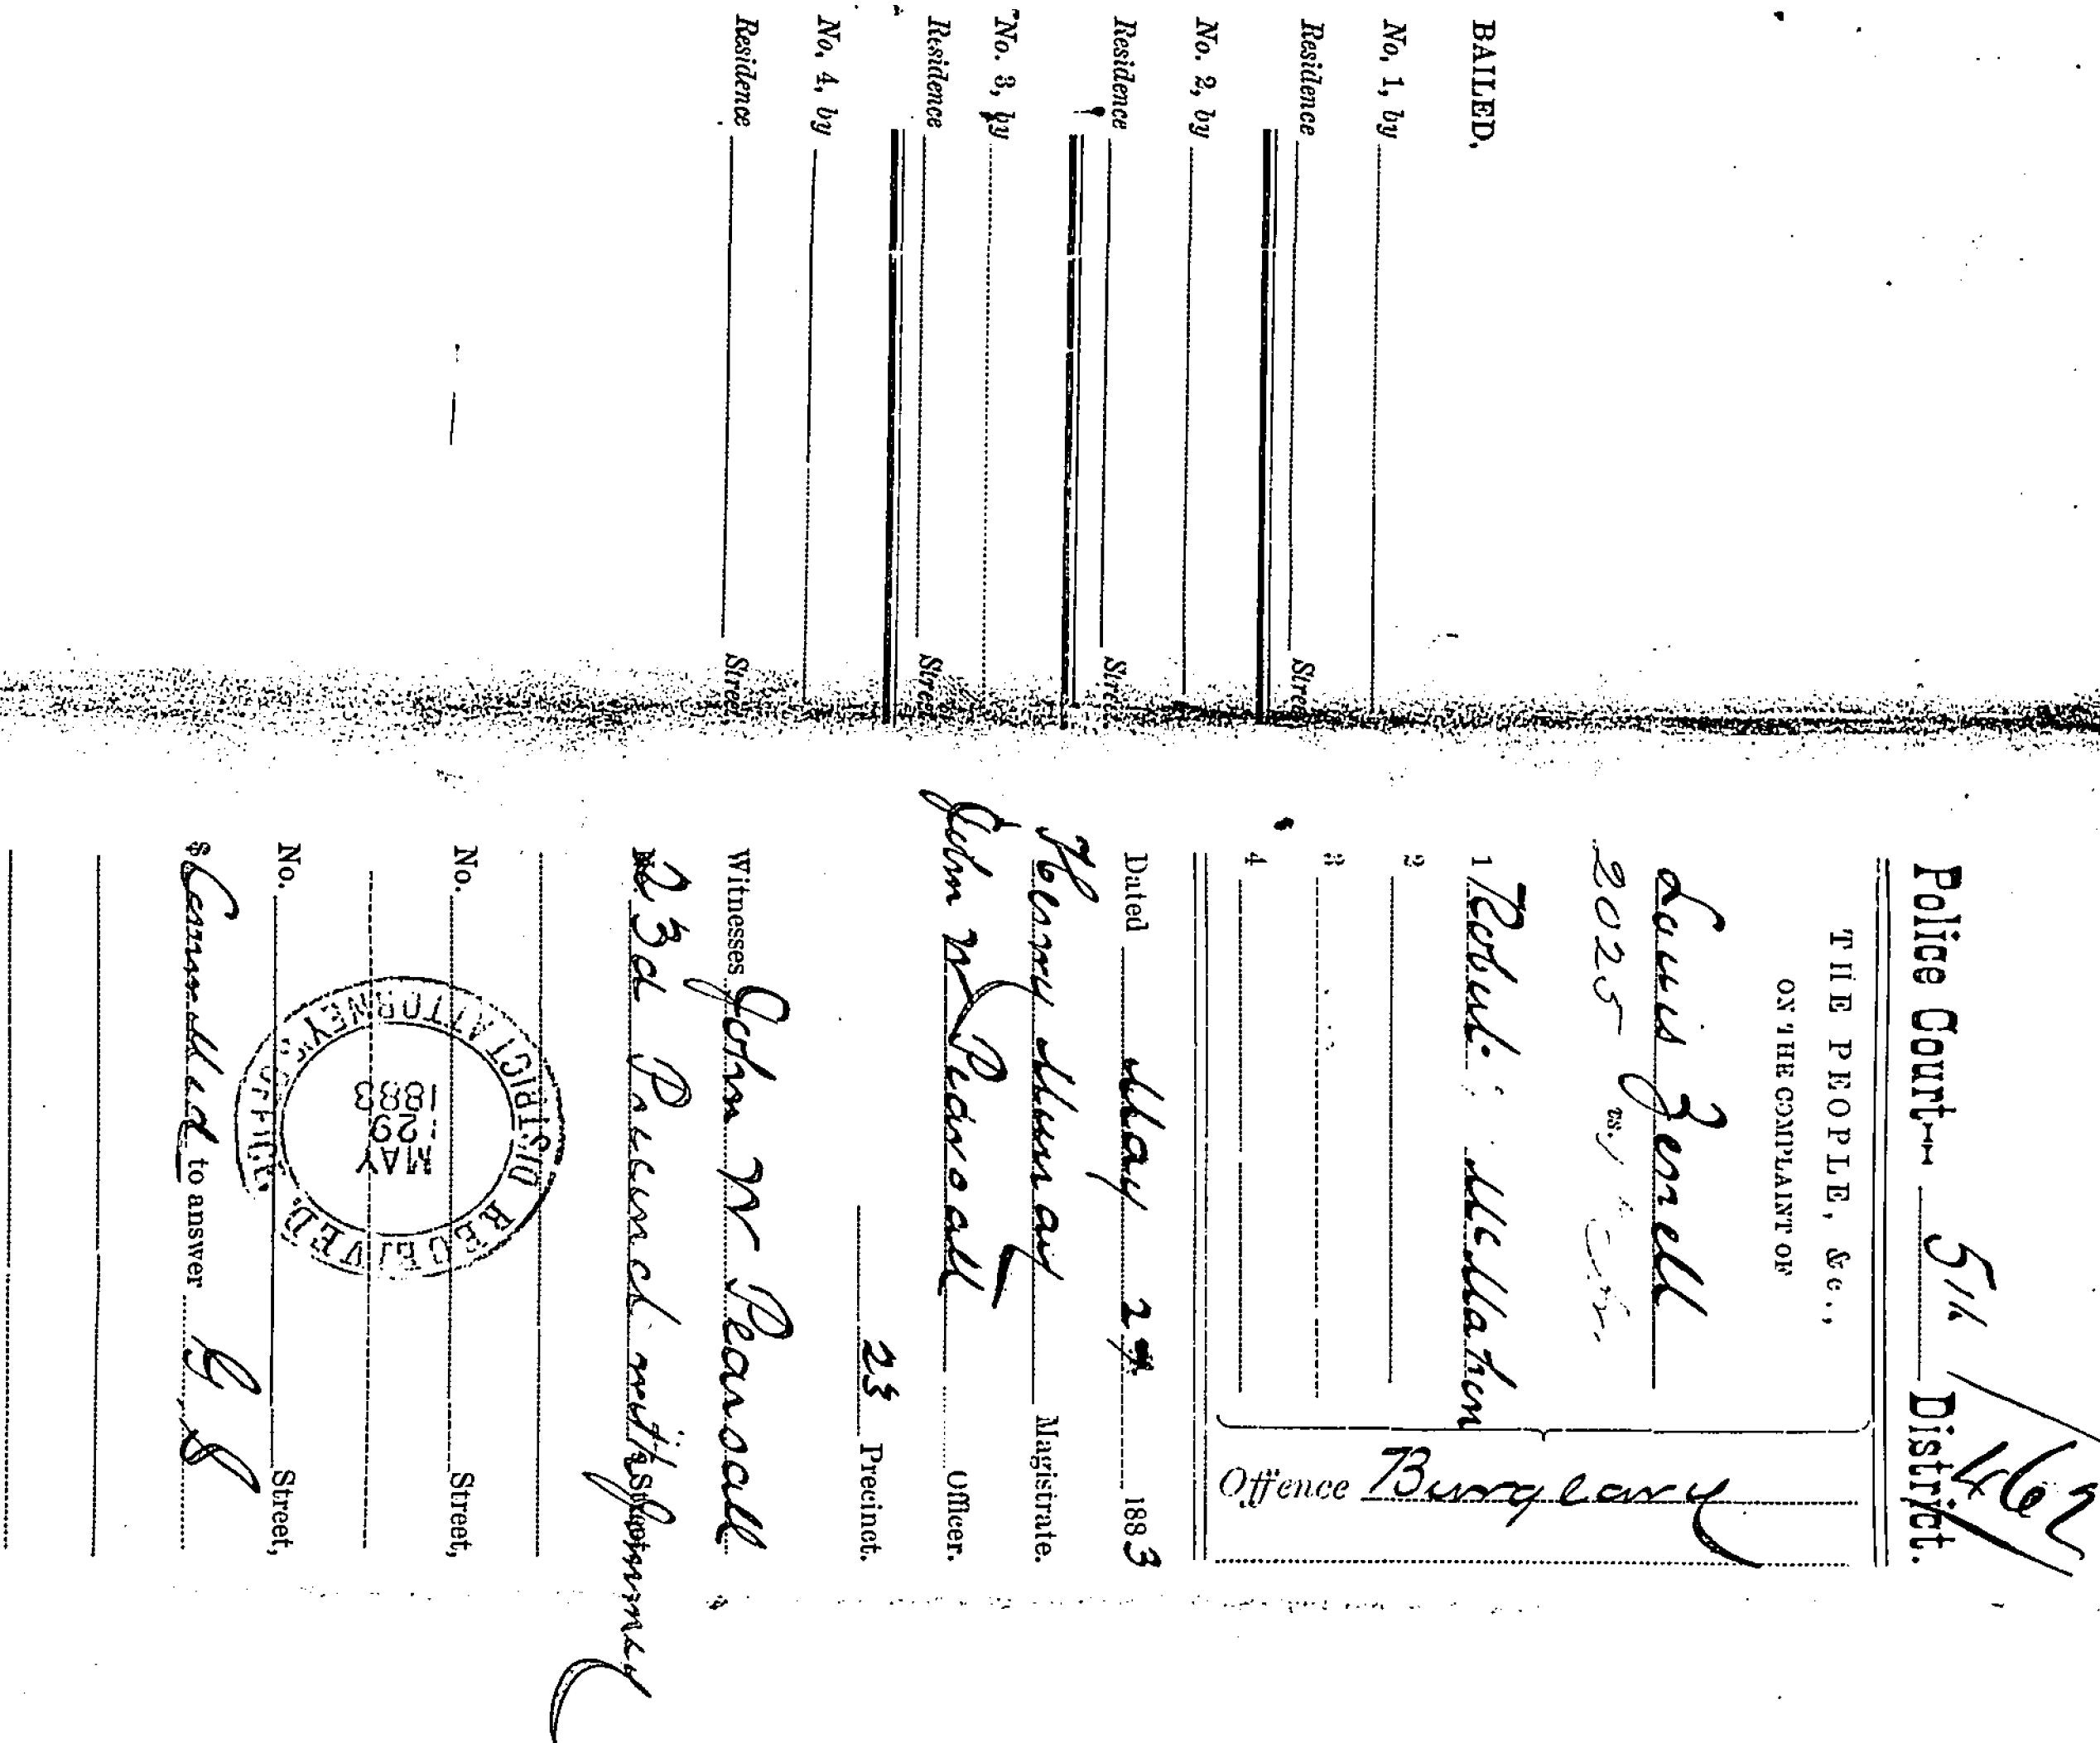 BAILED,
No. 1, by
Residence Street
No. 2, by
Residence Street
No. 3, by
Residence Street
No. 4, by
Residence Street
462
Police Court 5th District.
THE PEOPLE, &c.,
ON THE COMPLAINT OF
Louis Zerrell
2025
vs.
1 Robert McMahon
2
3
4
Offence Burglary
Dated May 27 1883
Henry Murray Magistrate.
John W Pearsall Officer.
23 Precinct.
Witnesses John W Pearsall
No. 23d Precinct with Street
No. Street,
No. Street,
RECEIVED
MAY
29
1883
DISTRICT ATTORNEY'S OFFICE.
$ Committed to answer G S